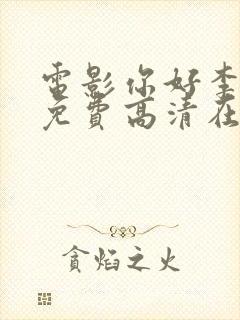 電影你好李
免費高清在
貪焰之火